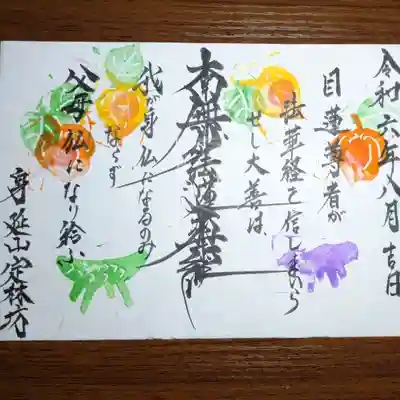 令和六年八月吉日
目蓮尊者が
法華経を信じまいら
せし大善は、
南無妙法蓮華経
我が身仏になるのみ
ならず
父母仏になり給ふ
身延山定林坊